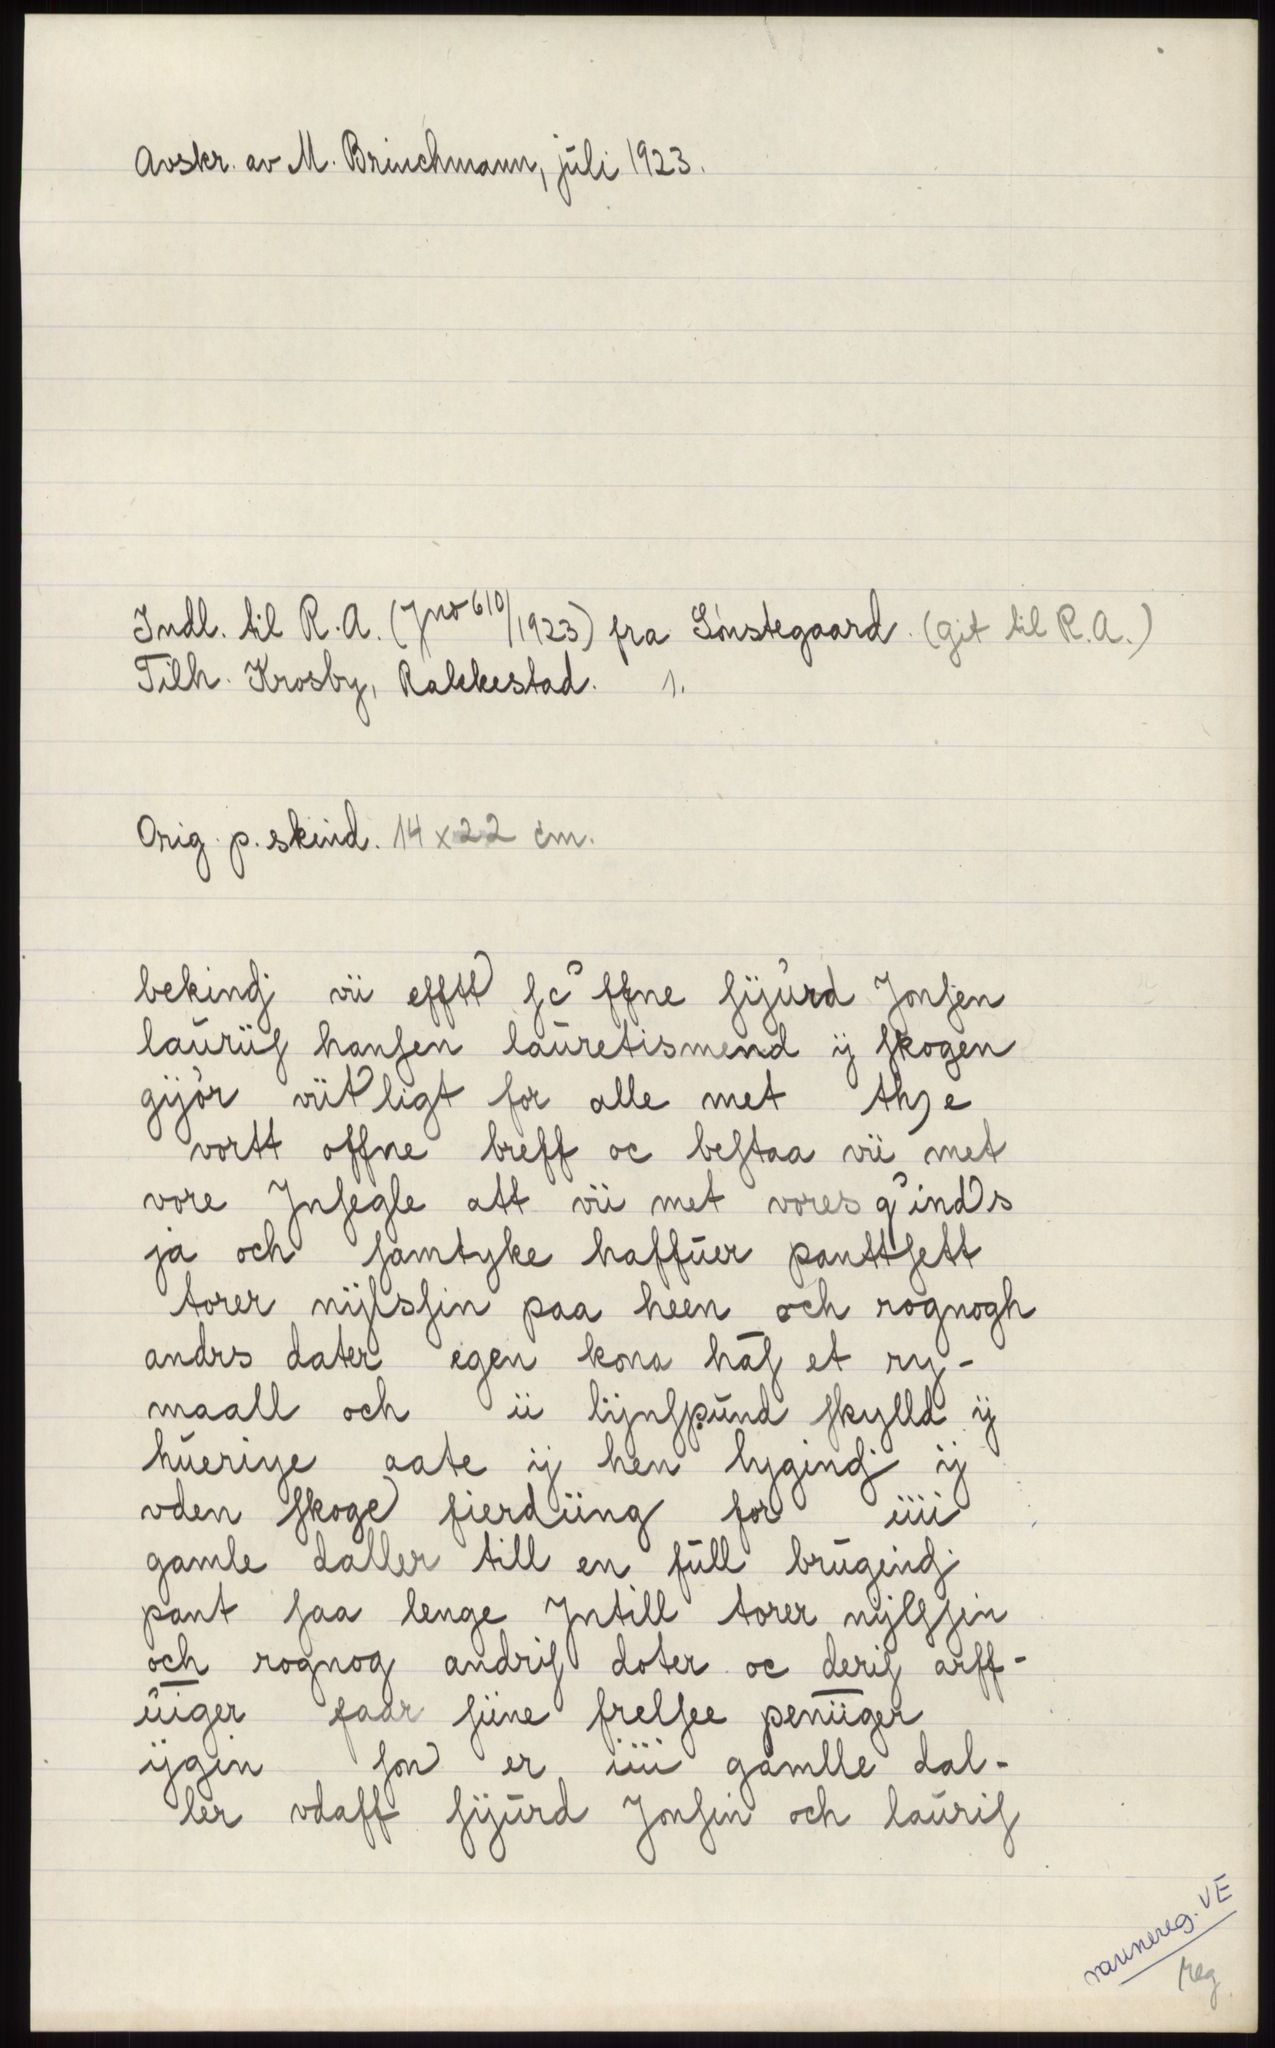 Avskr. av M. Brinchmann, juli 1923.
Indl. til R.A. (Jno 610/1923) fra Sönstegaard. (git til R.A.)
Tilh. Krosby, Rakkestad. 1.
Orig. p. skind. 14 x 22 cm.
bekindj vii efftt ffne sijurd Jonsen
lauriis hansen lauretismend ij skogen
gijör viitligt for alle met the
vortt offne breff oc bestaa vii met
vore Jnsegle att vii met vores
ja och samtyke haffuer panttsett
torer nijlssin paa heen och rognogh
andrs dater egen kona et ry-
maall och ii lijnspund skylld ij
hueriye aate ij hen lygindj ij
vden skoge fierdiing for iiii
gamle daller till en full brugindj
pant saa lenge Jntill torer nijlssin
och rognog andris doter oc deris arff-
uiger faar siine frelsee peniiger
ijgin som er iiii gamlle dal-
ler vdaff sijurd Jonsin och lauris
navnereg. VE
reg